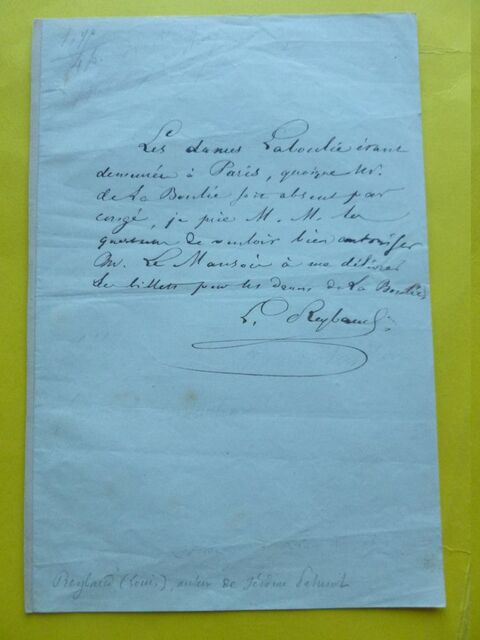 Les dames Laboulie étant
demeurées à Paris, quoique Mr.
de La Boulie soit absent par
congé, je prie M. M. les
questeurs de vouloir bien autoriser
Mr. Le Mansois à me délivrer
de billets pour les dames de La Boulie
L. Reybaud
Reybaud (Louis), auteur de Jérôme Paturot